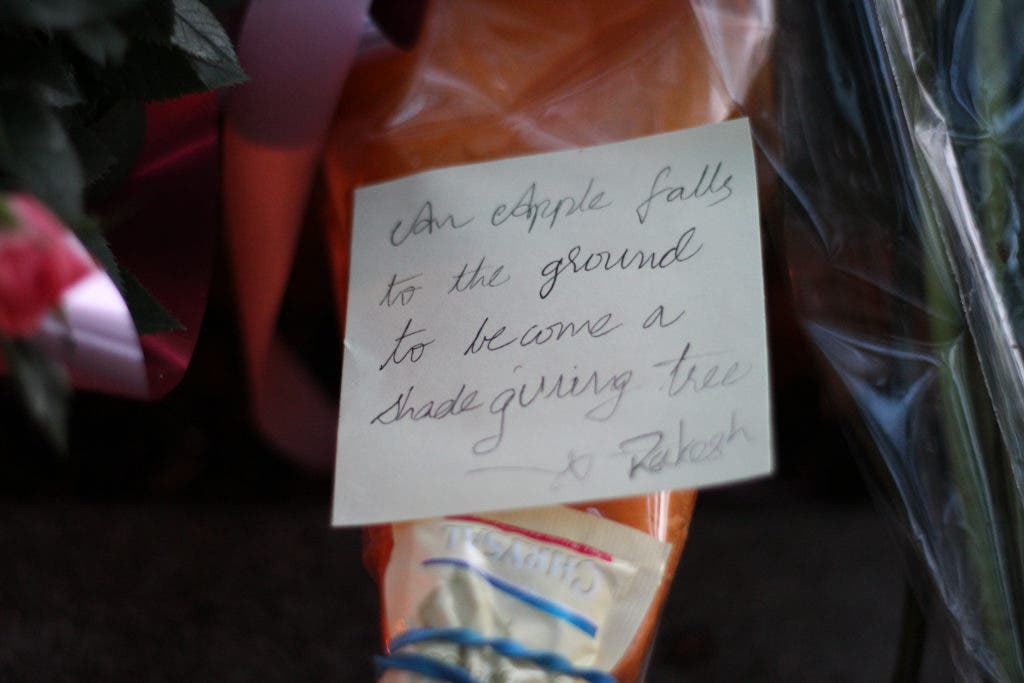 An Apple falls
to the ground
to become a
shade giving tree
Rakesh
CHRYSAL